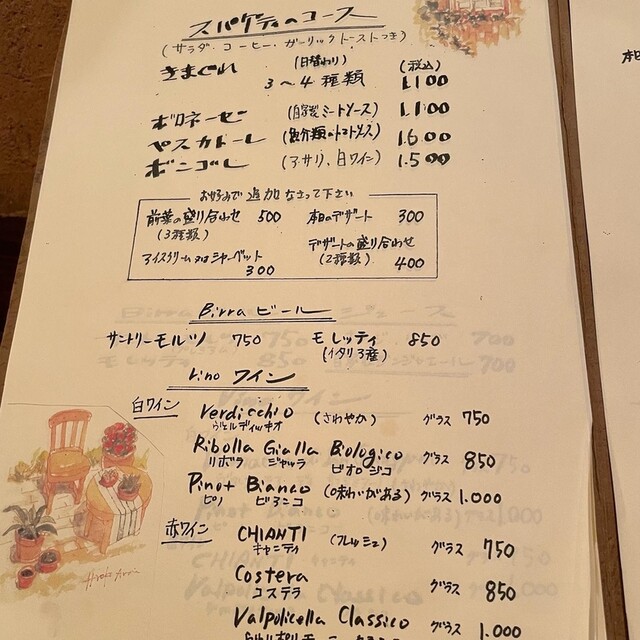 スパゲティのコース
(サラダ・コーヒー・ガーリックトーストつき)
きまぐれ (日替わり) 3〜4種類 (税込) 1.100
ボロネーゼ (自家製ミートソース) 1.100
ペスカトーレ (魚介類のトマトソース) 1.600
ボンゴレ (アサリ、白ワイン) 1.500
お好みで追加なさって下さい
前菜の盛り合わせ 500 本日のデザート 300
(3種類) デザートの盛り合わせ
アイスクリーム又はシャーベット (2種類)
300 400
Birra ビール
サントリーモルツ 750 モレッティ 850
(イタリア産)
Vino ワイン
白ワイン Verdicchio (さわやか) グラス 750
ヴェルディッキオ
Ribolla Gialla Biologico グラス 850
リボラ ジャッラ ビオロジコ
Pinot Bianco (味わいがある) グラス 1.000
ピノ ビアンコ
赤ワイン CHIANTI (フレッシュ) グラス 750
キャンティ
Costera グラス 850
コステラ
Valpolicella Classico グラス 1.000